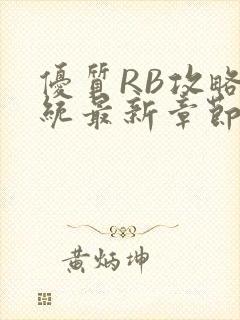 優質RB攻略
統最新章節
黃炳坤